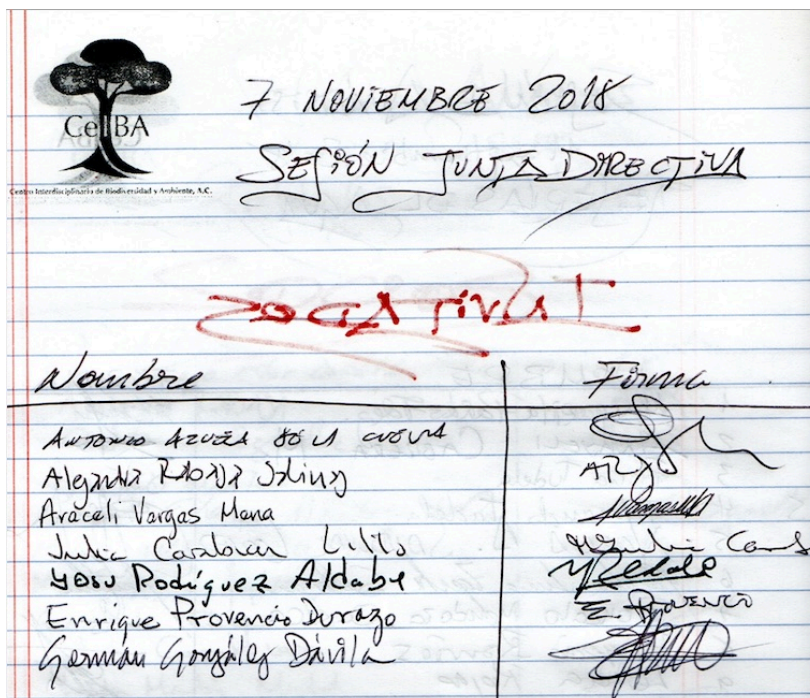 CeIBA
Centro Interdisciplinario de Biodiversidad y Ambiente, A.C.
7 NOVIEMBRE 2018
SESIÓN JUNTA DIRECTIVA
Nombre Firma
ANTONIO AZUELA DE LA CUEVA
Alejandra Salinas
Araceli Vargas Mena
Julia Carabias Lillo
Yosu Rodríguez Aldabe
Enrique Provencio Durazo E. PROVENCIO
Germán González Dávila